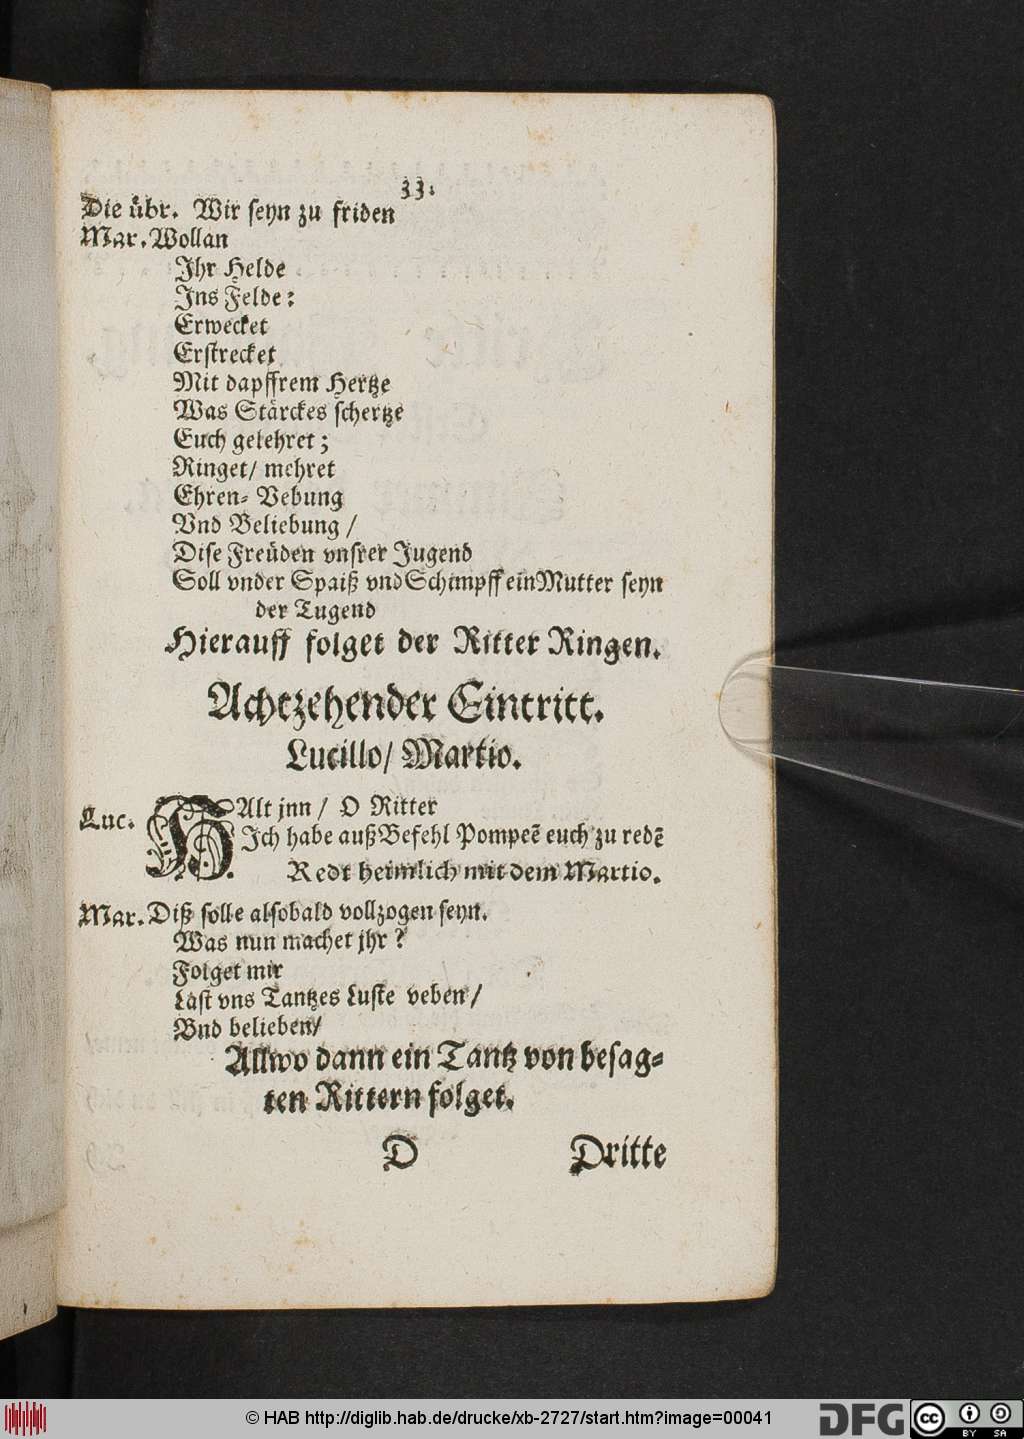 33.
Die übr. Wir seyn zu friden
Mar. Wollan
Ihr Helde
Ins Felde:
Erwecket
Erstrecket
Mit dapffrem Hertze
Was Stärckes schertze
Euch gelehret;
Ringet/ mehret
Ehren- Vebung
Vnd Beliebung /
Dise Freüden vnsrer Jugend
Soll vnder Spaiß vnd Schimpff ein Mutter seyn
der Tugend
Hierauff folget der Ritter Ringen.
Achtzehender Eintritt.
Lucillo/ Martio.
Luc. HAlt jnn / O Ritter
Ich habe auß Befehl Pompeẽ euch zu redẽ
Redt heimlich mit dem Martio.
Mar. Diß solle alsobald vollzogen seyn.
Was nun machet jhr?
Folget mir
Läst vns Tantzes Luste veben/
Vnd belieben/
Allwo dann ein Tantz von besag-
ten Rittern folget.
D Dritte
© HAB http://diglib.hab.de/drucke/xb-2727/start.htm?image=00041
DFG
cc BY SA